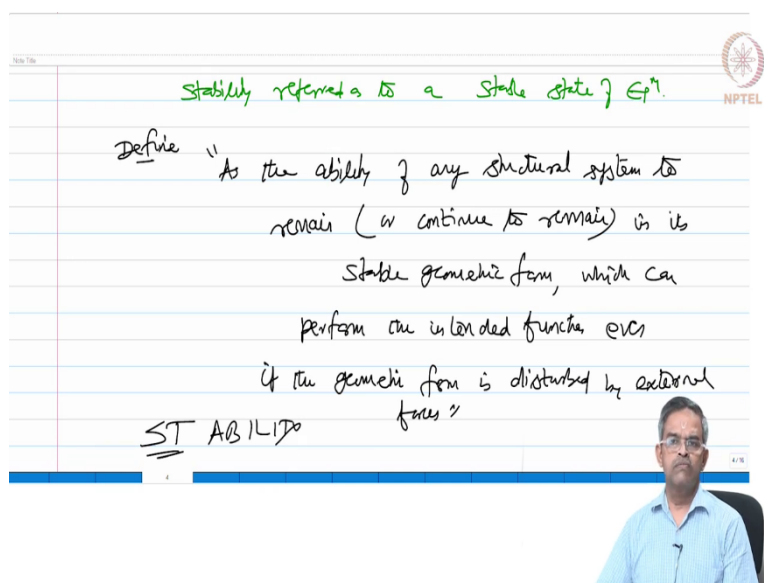 Note Title
NPTEL
Stability referred as to a stable state of Eqm.
Define "As the ability of any structural system to
remain (or continue to remain) in its
stable geometric form, which can
perform the intended function even
if the geometric form is disturbed by external
forces"
STABILITY
4
4/16